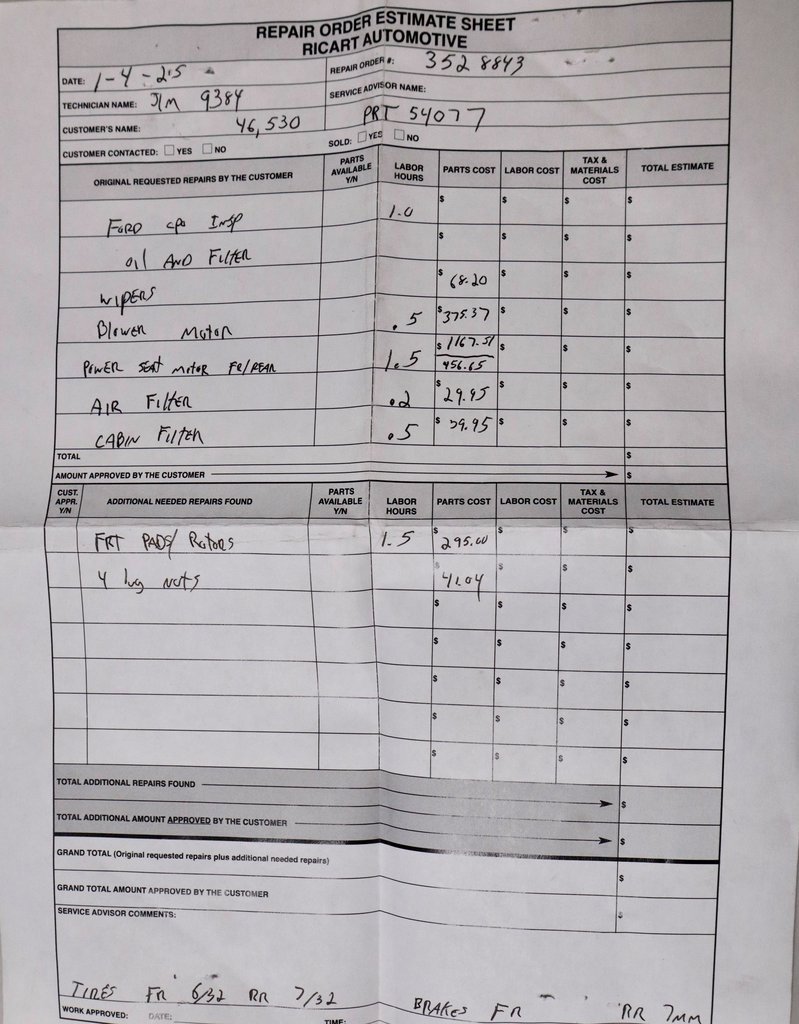 REPAIR ORDER ESTIMATE SHEET
RICART AUTOMOTIVE
DATE: 1-4-25 REPAIR ORDER #: 3528843
TECHNICIAN NAME: JIM 9384 SERVICE ADVISOR NAME:
CUSTOMER'S NAME: 46,530 PRT 54077
CUSTOMER CONTACTED: YES NO SOLD: YES NO
ORIGINAL REQUESTED REPAIRS BY THE CUSTOMER PARTS AVAILABLE Y/N LABOR HOURS PARTS COST LABOR COST TAX & MATERIALS COST TOTAL ESTIMATE
FORD CPO INSP 1.0 $ $ $ $
OIL AND FILTER $ $ $ $
WIPERS $ 68.20 $ $ $
BLOWER MOTOR .5 $ 375.37 $ $ $
POWER SEAT MOTOR FR/REAR 1.5 $ 1167.51 456.65 $ $ $
AIR FILTER .2 $ 29.95 $ $ $
CABIN FILTER .5 $ 39.95 $ $ $
TOTAL $
AMOUNT APPROVED BY THE CUSTOMER $
CUST. APPR. Y/N ADDITIONAL NEEDED REPAIRS FOUND PARTS AVAILABLE Y/N LABOR HOURS PARTS COST LABOR COST TAX & MATERIALS COST TOTAL ESTIMATE
FRT PADS/ Rotors 1.5 $ 295.00 $ $ $
4 lug nuts $ 41.04 $ $ $
$ $ $ $
$ $ $ $
$ $ $ $
$ $ $ $
$ $ $ $
TOTAL ADDITIONAL REPAIRS FOUND $
TOTAL ADDITIONAL AMOUNT APPROVED BY THE CUSTOMER $
GRAND TOTAL (Original requested repairs plus additional needed repairs) $
GRAND TOTAL AMOUNT APPROVED BY THE CUSTOMER $
SERVICE ADVISOR COMMENTS:
TIRES FR 6/32 RR 7/32 BRAKES FR RR 7MM
WORK APPROVED: DATE: TIME: